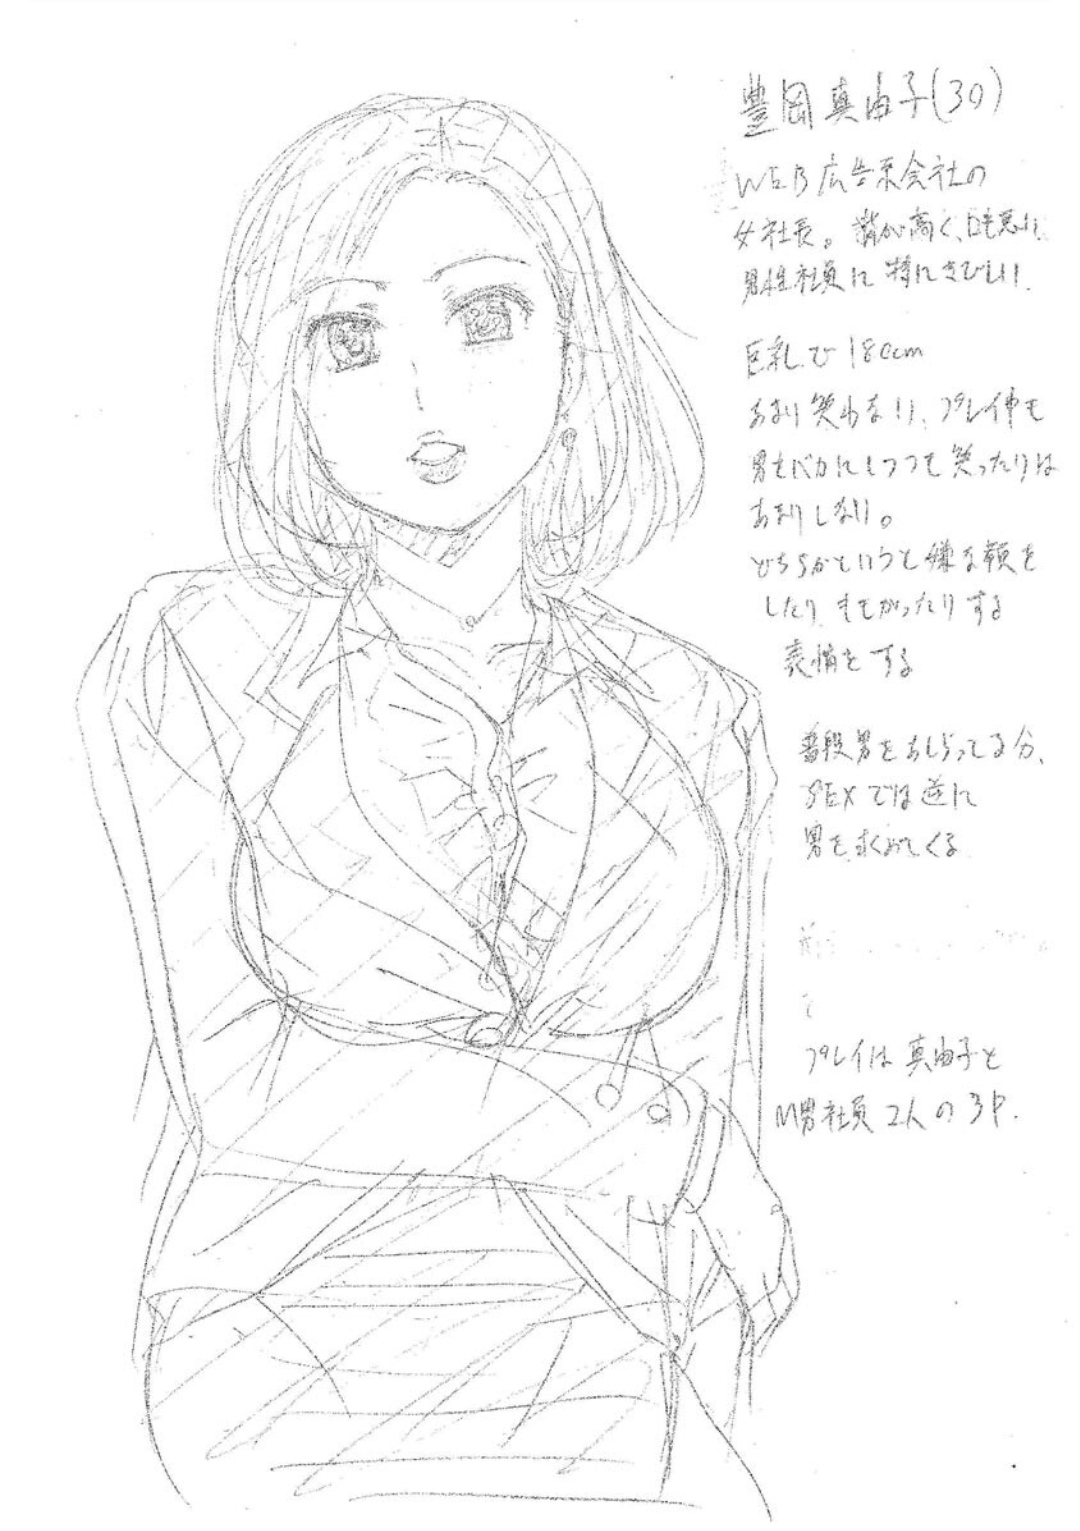 豊岡真由子(30)
WEB広告系会社の
女社長。背が高く、口も悪い、
男性社員に特にきびしい.
巨乳で180cm
あまり笑わない、プレイ中も
男をバカにしつつも笑ったりは
あまりしない。
どちらかというと嫌な顔を
したり
する
表情をする
普段男をあしらってる分、
SEXでは逆に
男を求めてくる
プレイは真由子と
M男社員2人の3P.